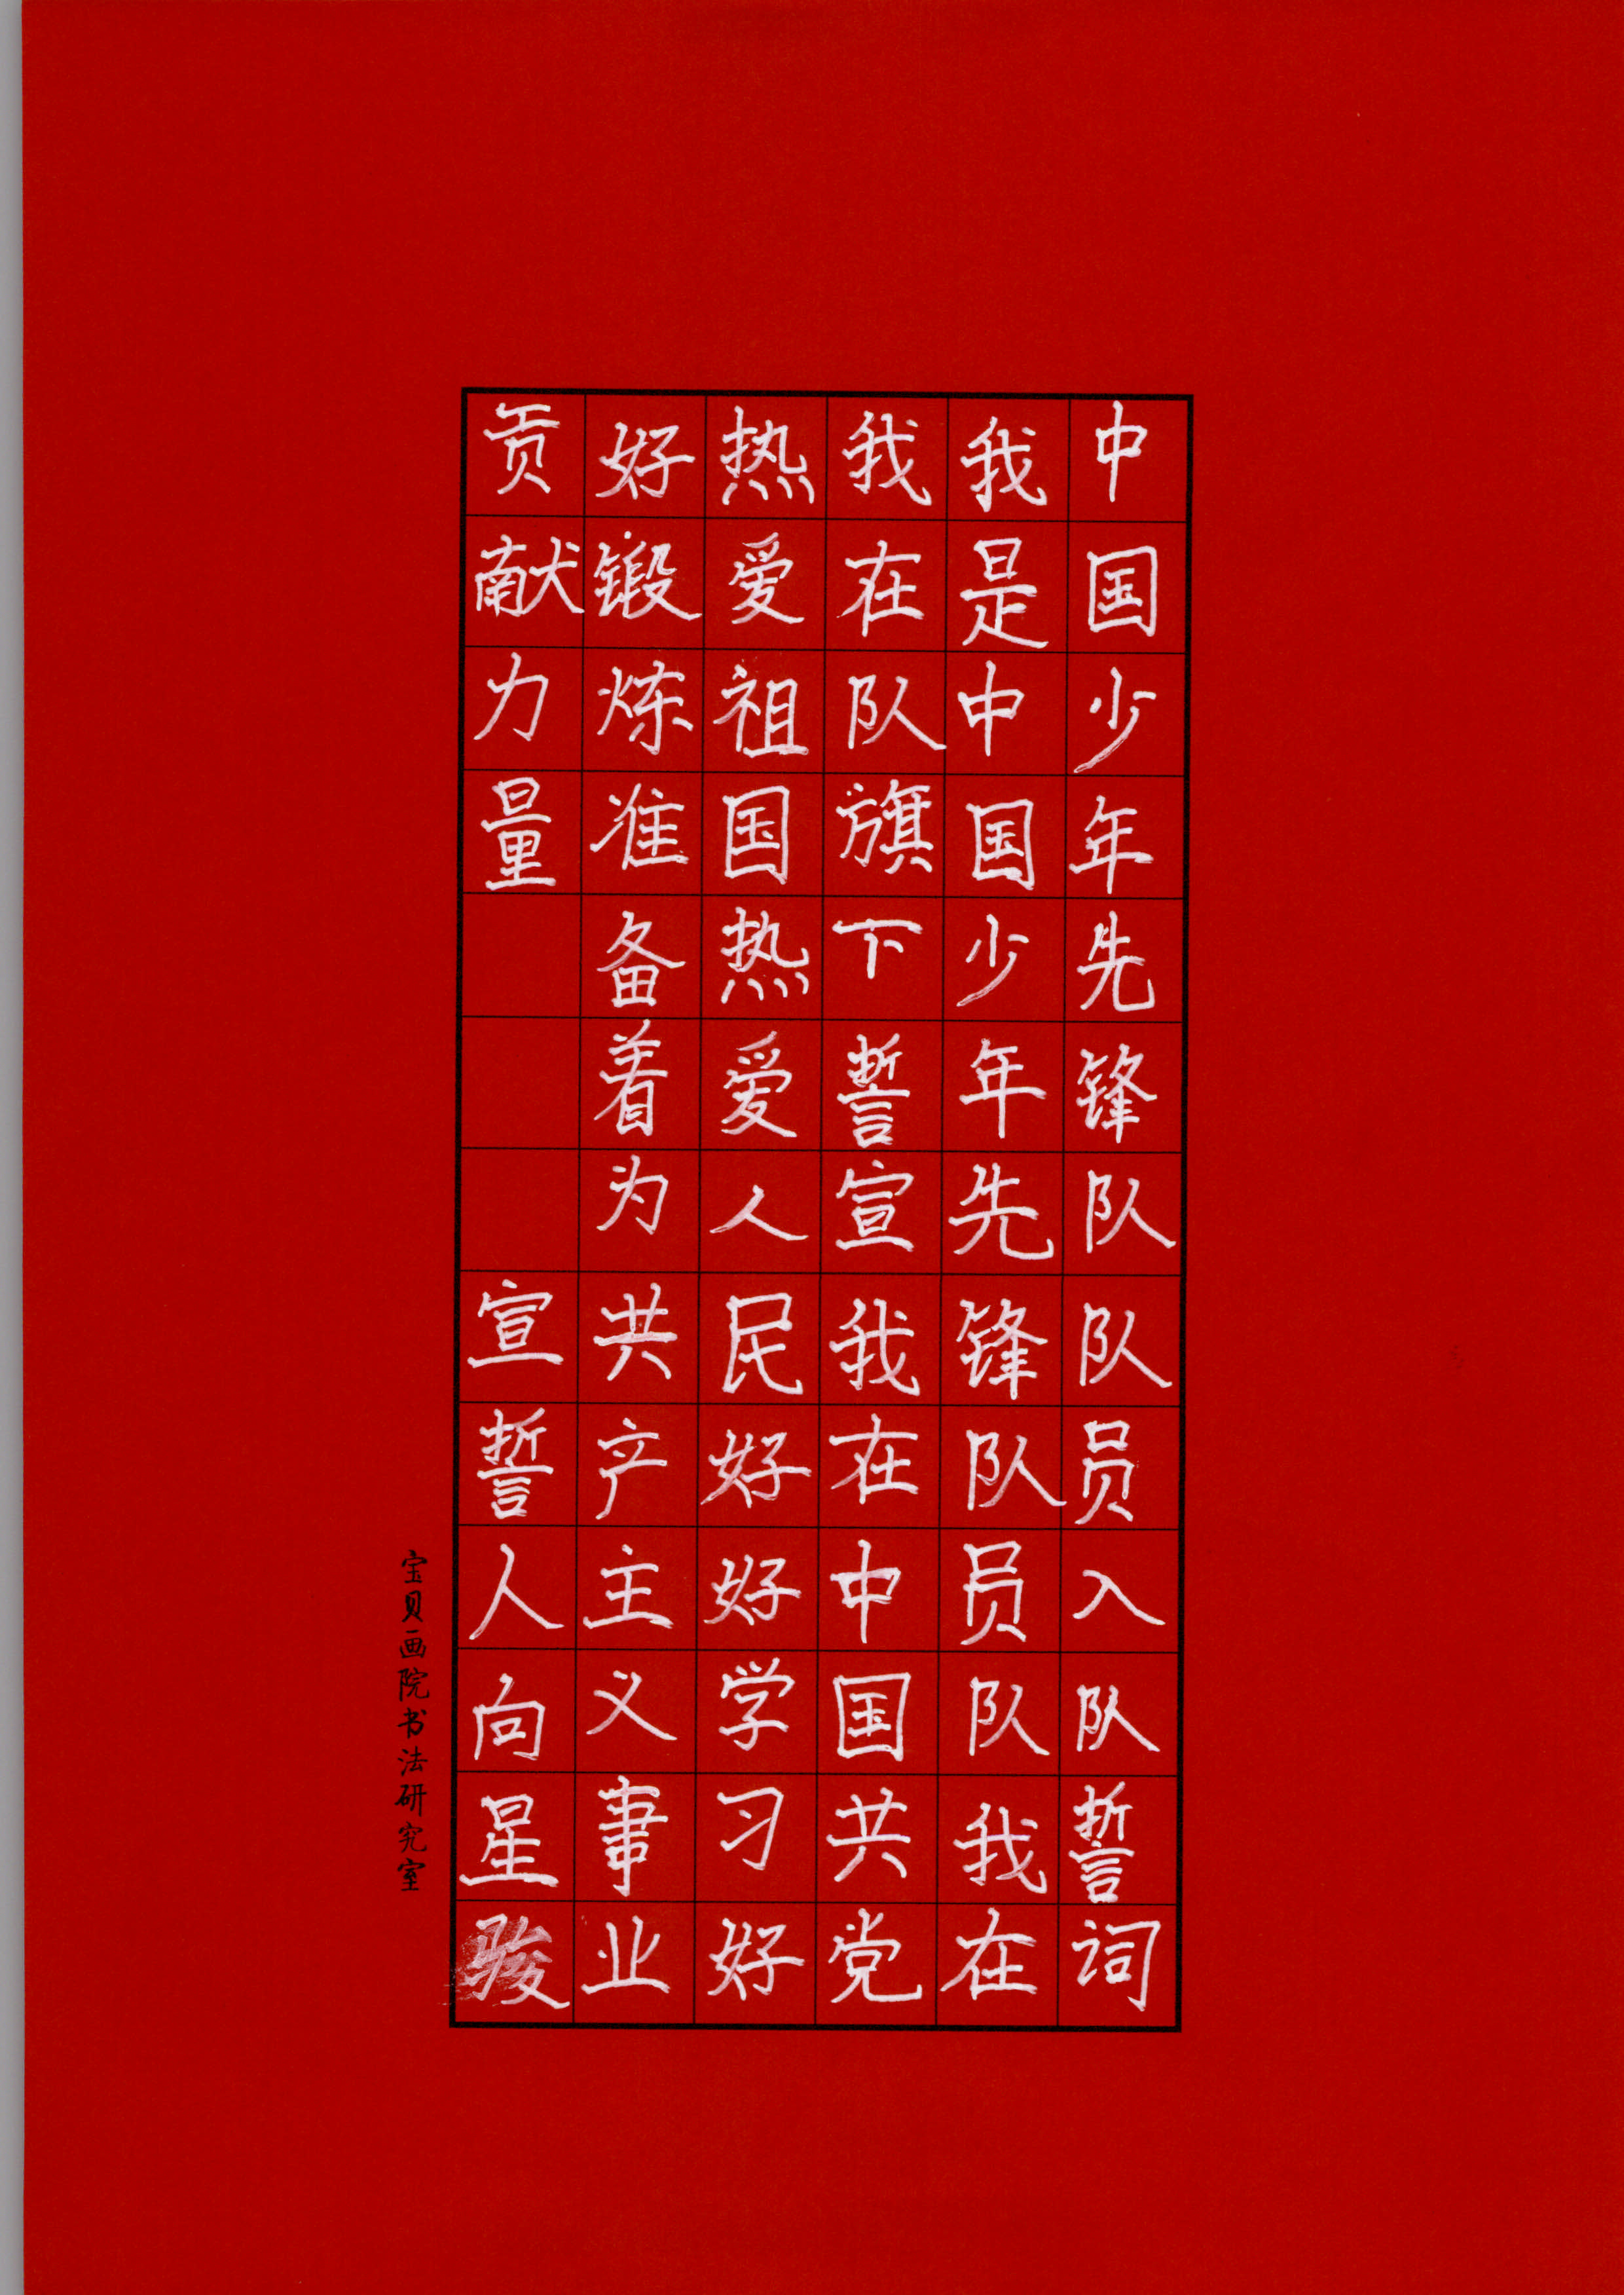 中国少年先锋队队员入队誓词
我是中国少年先锋队员队我在
我在队旗下誓宣我在中国共党
热爱祖国热爱人民好好学习好
好锻炼准备着为共产主义事业
贡献力量 宣誓人向星骏
宝贝画院书法研究室